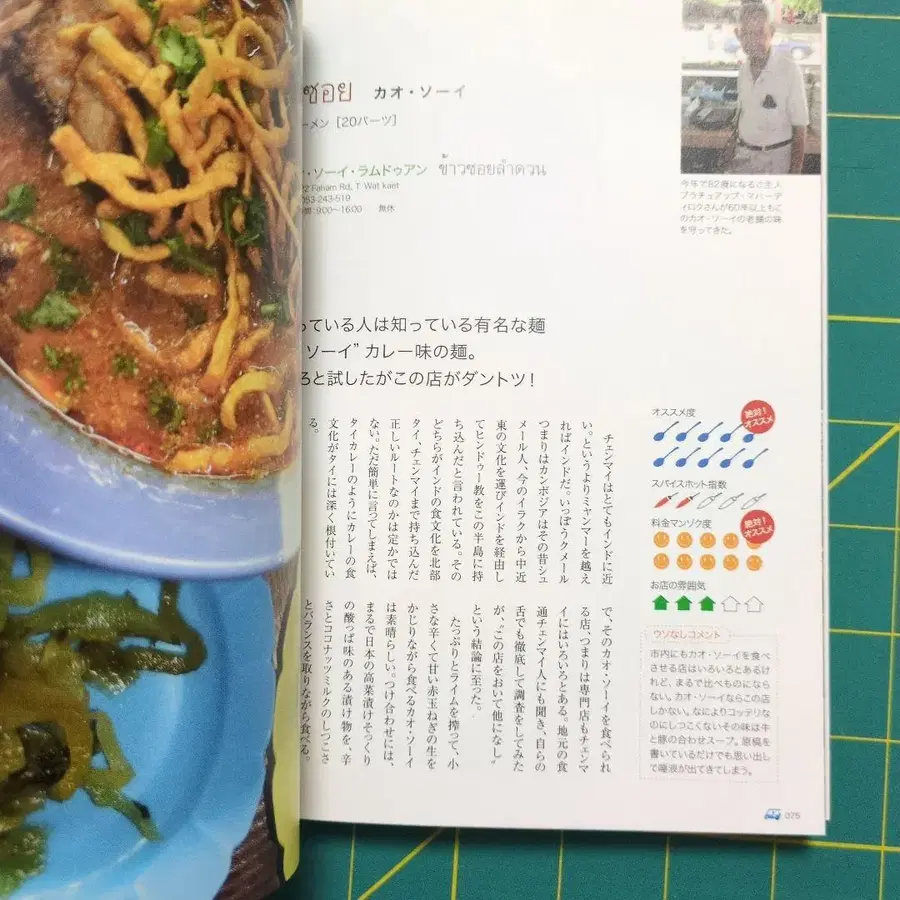 ซอย カオ・ソーイ
ーメン [20バーツ]
・ソーイ・ラムドゥアン ข้าวซอยลำดวน
2 Faham Rd, T. Wat kaet
053-243-519
9:00〜16:00 無休
今年で82歳になるご主人
プラチュアップ・マハーデ
ィロクさんが60年以上もこ
のカオ・ソーイの老舗の味
を守ってきた。
っている人は知っている有名な麺
ソーイ” カレー味の麺。
ろと試したがこの店がダントツ!
チェンマイはとてもインドに近
い。というよりミャンマーを越え
ればインドだ。いっぽうクメール
つまりはカンボジアはその昔シュ
メール人、今のイラクから中近
東の文化を運びインドを経由し
てヒンドゥー教をこの半島に持
ち込んだと言われている。その
どちらがインドの食文化を北部
タイ、チェンマイまで持ち込んだ
正しいルートなのかは定かでは
ない。ただ簡単に言ってしまえば、
タイカレーのようにカレーの食
文化がタイには深く根付いてい
る。
で、そのカオ・ソーイを食べられ
る店、つまりは専門店もチェンマ
イにはいろいろとある。地元の食
通チェンマイ人にも聞き、自らの
舌でも徹底して調査をしてみた
が、“この店をおいて他になし。”
という結論に至った。
たっぷりとライムを搾って、小
さな辛くて甘い赤玉ねぎの生を
かじりながら食べるカオ・ソーイ
は素晴らしい。つけ合わせには、
まるで日本の高菜漬けそっくり
の酸っぱ味のある漬け物を、辛
さとココナッツミルクのしつこさ
とバランスを取りながら食べる。
オススメ度
絶対!
オススメ
スパイスホット指数
料金マンゾク度
絶対!
オススメ
お店の雰囲気
ウソなしコメント
市内にもカオ・ソーイを食べ
させる店はいろいろとあるけ
れど、まるで比べものになら
ない。カオ・ソーイならこの店
しかない。なによりコッテリな
のにしつこくないその味は牛
と豚の合わせスープ。原稿を
書いているだけでも思い出し
て唾液が出てきてしまう。
075